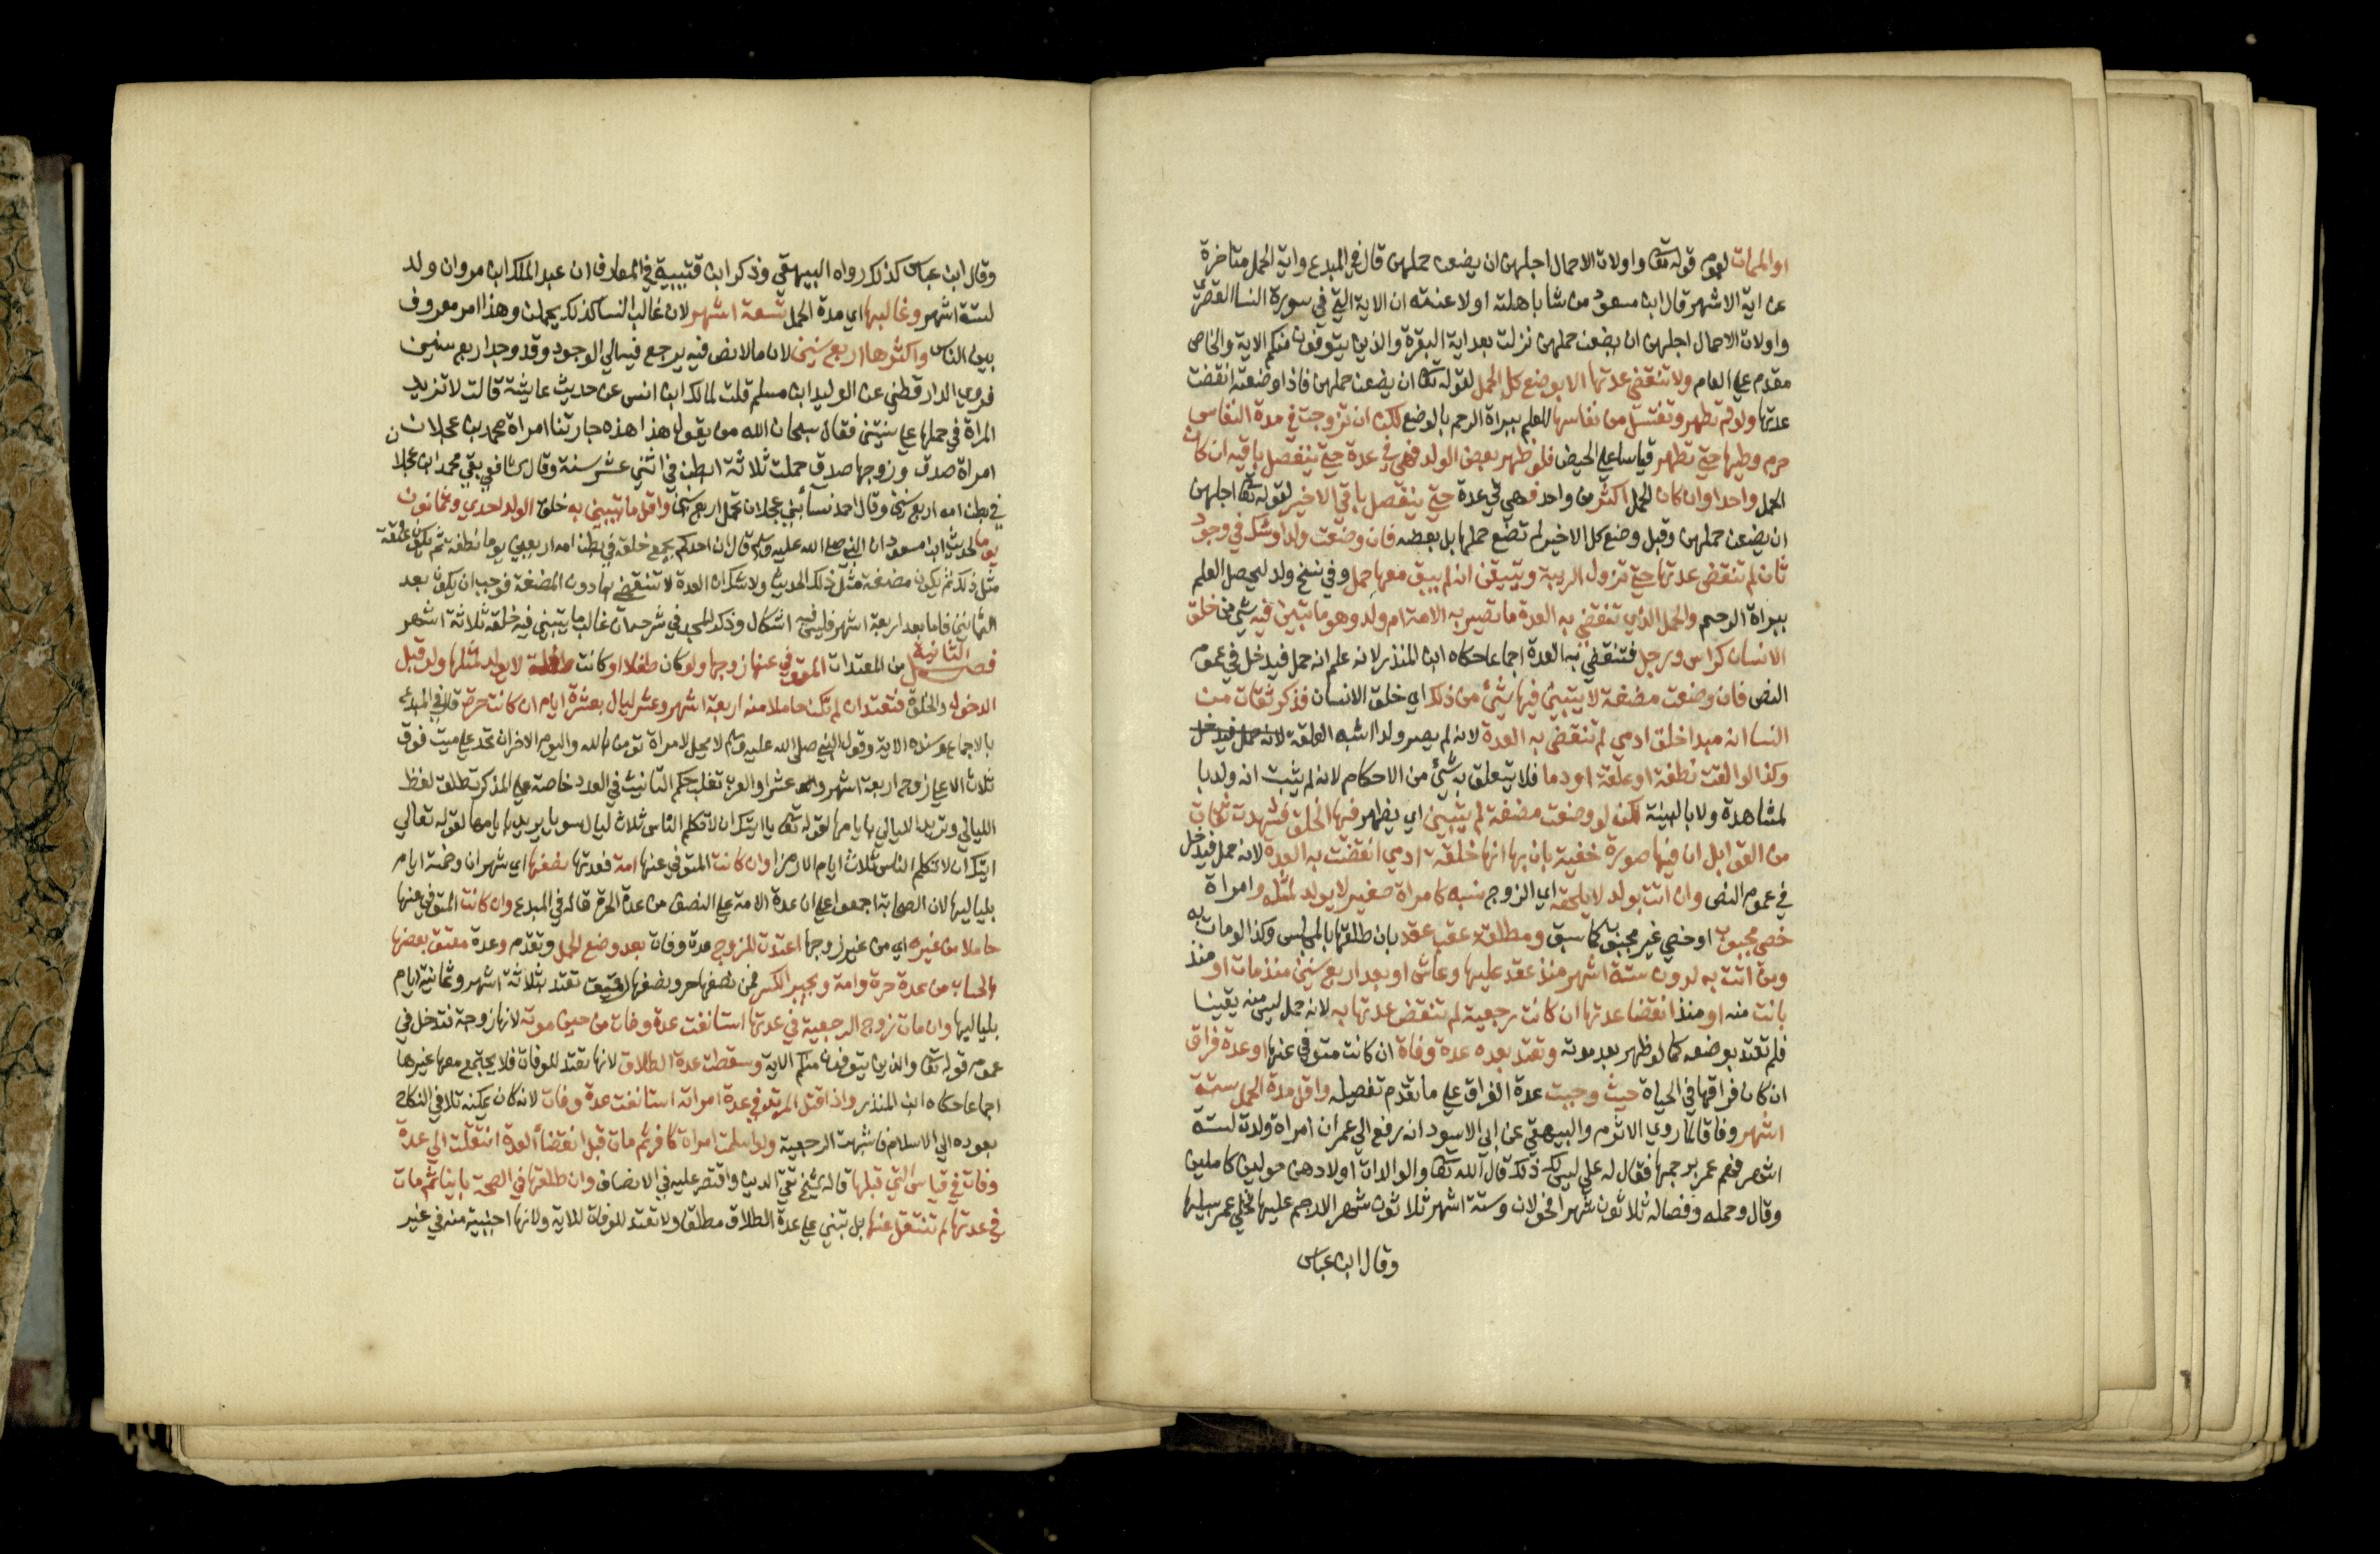 او الممات لعموم قوله تعالى واولات الاحمال اجلهن ان يضعن حملهن قال في المبدع واية الحمل متاخرة
عن اية الاشهر قال ابن مسعود من شا باهلته او لاعنته ان الاية التي في سورة النسا القصرى
واولات الاحمال اجلهن ان يضعن حملهن نزلت بعد اية البقرة والذين يتوفون منكم الاية والخاص
مقدم علي العام ولا تنقضي عدتها الا بوضع كل الحمل لقوله تعالى ان يضعن حملهن فاذا وضعته انقضت
عدتها ولو لم تطهر وتغتسل من نفاسها للعلم ببراة الرحم بالوضع لكن ان تزوجت في مدة النفاس
حرم وطيها حتي تطهر قياسا علي الحيض فلو ظهر بعض الولد فهي في عدة حتي ينفصل باقيه ان كان
الحمل واحدا وان كان الحمل اكثر من واحد فهي في عدة حتي ينفصل باقي الاخير لقوله تعالى اجلهن
ان يضعن حملهن وقبل وضع كل الاخير لم تضع حملها بل بعضه فان وضعت ولدا وشك في وجود
ثان لم تنقض عدتها حتي تزول الريبة ويتيقن انه لم يبق معها حمل وفي نسخ ولد ليحصل العلم
ببراة الرحم والحمل الذي تنقضي به العدة ما تصير به الامة ام ولد وهو ما تبين فيه شي من خلق
الانسان كراس ورجل فتنقضي به العدة اجماعا حكاه ابن المنذر لانه علم انه حمل فيدخل في عموم
النص فان وضعت مضغة لا يتبين فيها شيئ من ذلك اي خلق الانسان فذكر ثقات من
النسا انه مبدا خلق ادمي لم تنقض به العدة لانه لم يصر ولدا اشبه العلقة لانه حمل فيدخل
وكذا لو القت نطفة او علقة او دما فلا يتعلق به شيئ من الاحكام لانه لم يثبت انه ولد با
لمشاهدة ولا بالبينة لكن لو وضعت مضغة لم يتبين اي يظهر فيها الخلق فشهدت ثقات
من القوابل ان فيها صورة خفية بان بها انها خلقة ادمي انقضت به العدة لانه حمل فيدخل
في عموم النص وان اتت بولد لا يلحقه اي الزوج نسبه كامراة صغير لا يولد لمثله وامراة
خصي مجبوب او خصي غير مجبوب كما سبق ومطلقة عقب عقد بان طلقها بالمجلس وكذا لو مات به
ومن اتت به لدون ستة اشهر منذ عقد عليها وعاش او بعد اربع سنين منذ مات او منذ
بانت منه او منذ انقضا عدتها ان كانت رجعية لم تنقض عدتها به لانه حمل ليس منه يقينا
فلم تعتد بوضعه كما لو ظهر بعد موته وتعتد بعده عدة وفاة ان كانت متوفي عنها او عدة فراق
ان كان فراقها في الحياة حيث وجبت عدة الفراق علي ما تقدم تفصيله واقل مدة الحمل ستة
اشهر وفاقا لما روي الاثرم والبيهقي عن ابي الاسود انه رفع الي عمر ان امراة ولدت لستة
اشهر فهم عمر برجمها فقال له علي ليس لك ذلك قال الله تعالى والوالدات اولادهن حولين كاملين
وقال وحمله وفصاله ثلاثون شهرا فحولان وستة اشهر ثلاثون شهرا لا رجم عليها فخلي عمر سبيلها
وقال ابن عباس
وقال ابن عباس كذلك رواه البيهقي وذكر ابن قتيبة في المعارف ان عبد الملك ابن مروان ولد
لستة اشهر وغالبها اي مدة الحمل تسعة اشهر لان غالب النسا كذلك يحملن وهذا امر معروف
بين الناس واكثرها اربع سنين لان ما لا نص فيه يرجع فيه الي الوجود وقد وجد اربع سنين
فروي الدارقطني عن الوليد ابن مسلم قلت لمالك ابن انس عن حديث عايشة قالت لا تزيد
المراة في حملها علي سنتين فقال سبحان الله من يقول هذا هذه جارتنا امراة محمد بن عجلان
امراة صدق وزوجها صدق حملت ثلاثة ابطن في اثني عشر سنة وقال الشافعي بقي محمد ابن عجلان
في بطن امه اربع سنين وقال احمد نسا بني عجلان تحمل اربع سنين واقل ما يتبين به خلق الولد احدي وثمانون
يوما لحديث ابن مسعود ان النبي صلى الله عليه وسلم قال ان احدكم يجمع خلقه في بطن امه اربعين يوما نطفة ثم يكون علقة
مثل ذلك ثم يكون مضغة مثل ذلك الحديث ولا شك ان العدة لا تنقضي بما دون المضغة فوجب ان يكون بعد
الثمانين فاما بعد اربعة اشهر فليس فيه اشكال وذكر المجد في شرحه ان غالب ما يتبين فيه خلقه ثلاثة اشهر
فصل الثانية من المعتدات المتوفي عنها زوجها ولو كان طفلا او كانت طفلة لا يولد لمثلها ولو قبل
الدخول والخلوة فتعتد ان لم تكن حاملا منه اربعة اشهر وعشر ليال بعشرة ايام ان كانت حرة قال في المبدع
بالاجماع وسنده الاية وقوله النبي صلى الله عليه وسلم لا يحل لامراة تومن بالله واليوم الاخر ان تحد علي ميت فوق
ثلاث الا علي زوج اربعة اشهر وعشرا والعرب تغلب حكم التانيث في العدد خاصة علي المذكر فتطلق لفظ
الليالي وتريد الليالي بايامها لقوله تعالى ايتك ان لا تكلم الناس ثلاث ليال سويا يريد بايامها لقوله تعالي
ايتك ان لا تكلم الناس ثلاث ايام الا رمزا وان كانت المتوفي عنها امة فعدتها نصفها اي شهران وخمسة ايام
بلياليها لان الصحابة اجمعوا علي ان عدة الامة علي النصف من عدة الحرة قاله في المبدع وان كانت المتوفي عنها
حاملا من غيره اي من غير زوجها اعتدت للزوج عدة وفات بعد وضع الحمل وتقدم وعدة معتق بعضها
بالحساب من عدة حرة وامة ويجبر الكسر فمن نصفها حر ونصفها رقيق تعتد بثلاثة اشهر وثمانية ايام
بلياليها وان مات زوج الرجعية في عدتها استانفت عدة وفات من حين موته لانها زوجة فتدخل في
عموم قوله تعالى والذين يتوفون منكم الاية وسقطت عدة الطلاق لانها تعتد للوفات فلا يجتمع معها غيرها
اجماعا حكاه ابن المنذر واذا قتل المرتد في عدة امراته استانفت عدة وفات لانه كان يمكنه تلافي النكاح
بعوده الي الاسلام فاشبهت الرجعية ولو اسلمت امراة كافر ثم مات قبل انقضا العدة انتقلت الي عدة
وفات في قياس التي قبلها قاله الشيخ تقي الدين واقتصر عليه في الانصاف وان طلقها في الصحة باينا ثم مات
في عدتها لم تنتقل عنها بل تبني علي عدة الطلاق مطلقا ولا تعتد للوفات للاية ولانها اجنبية منه في غير